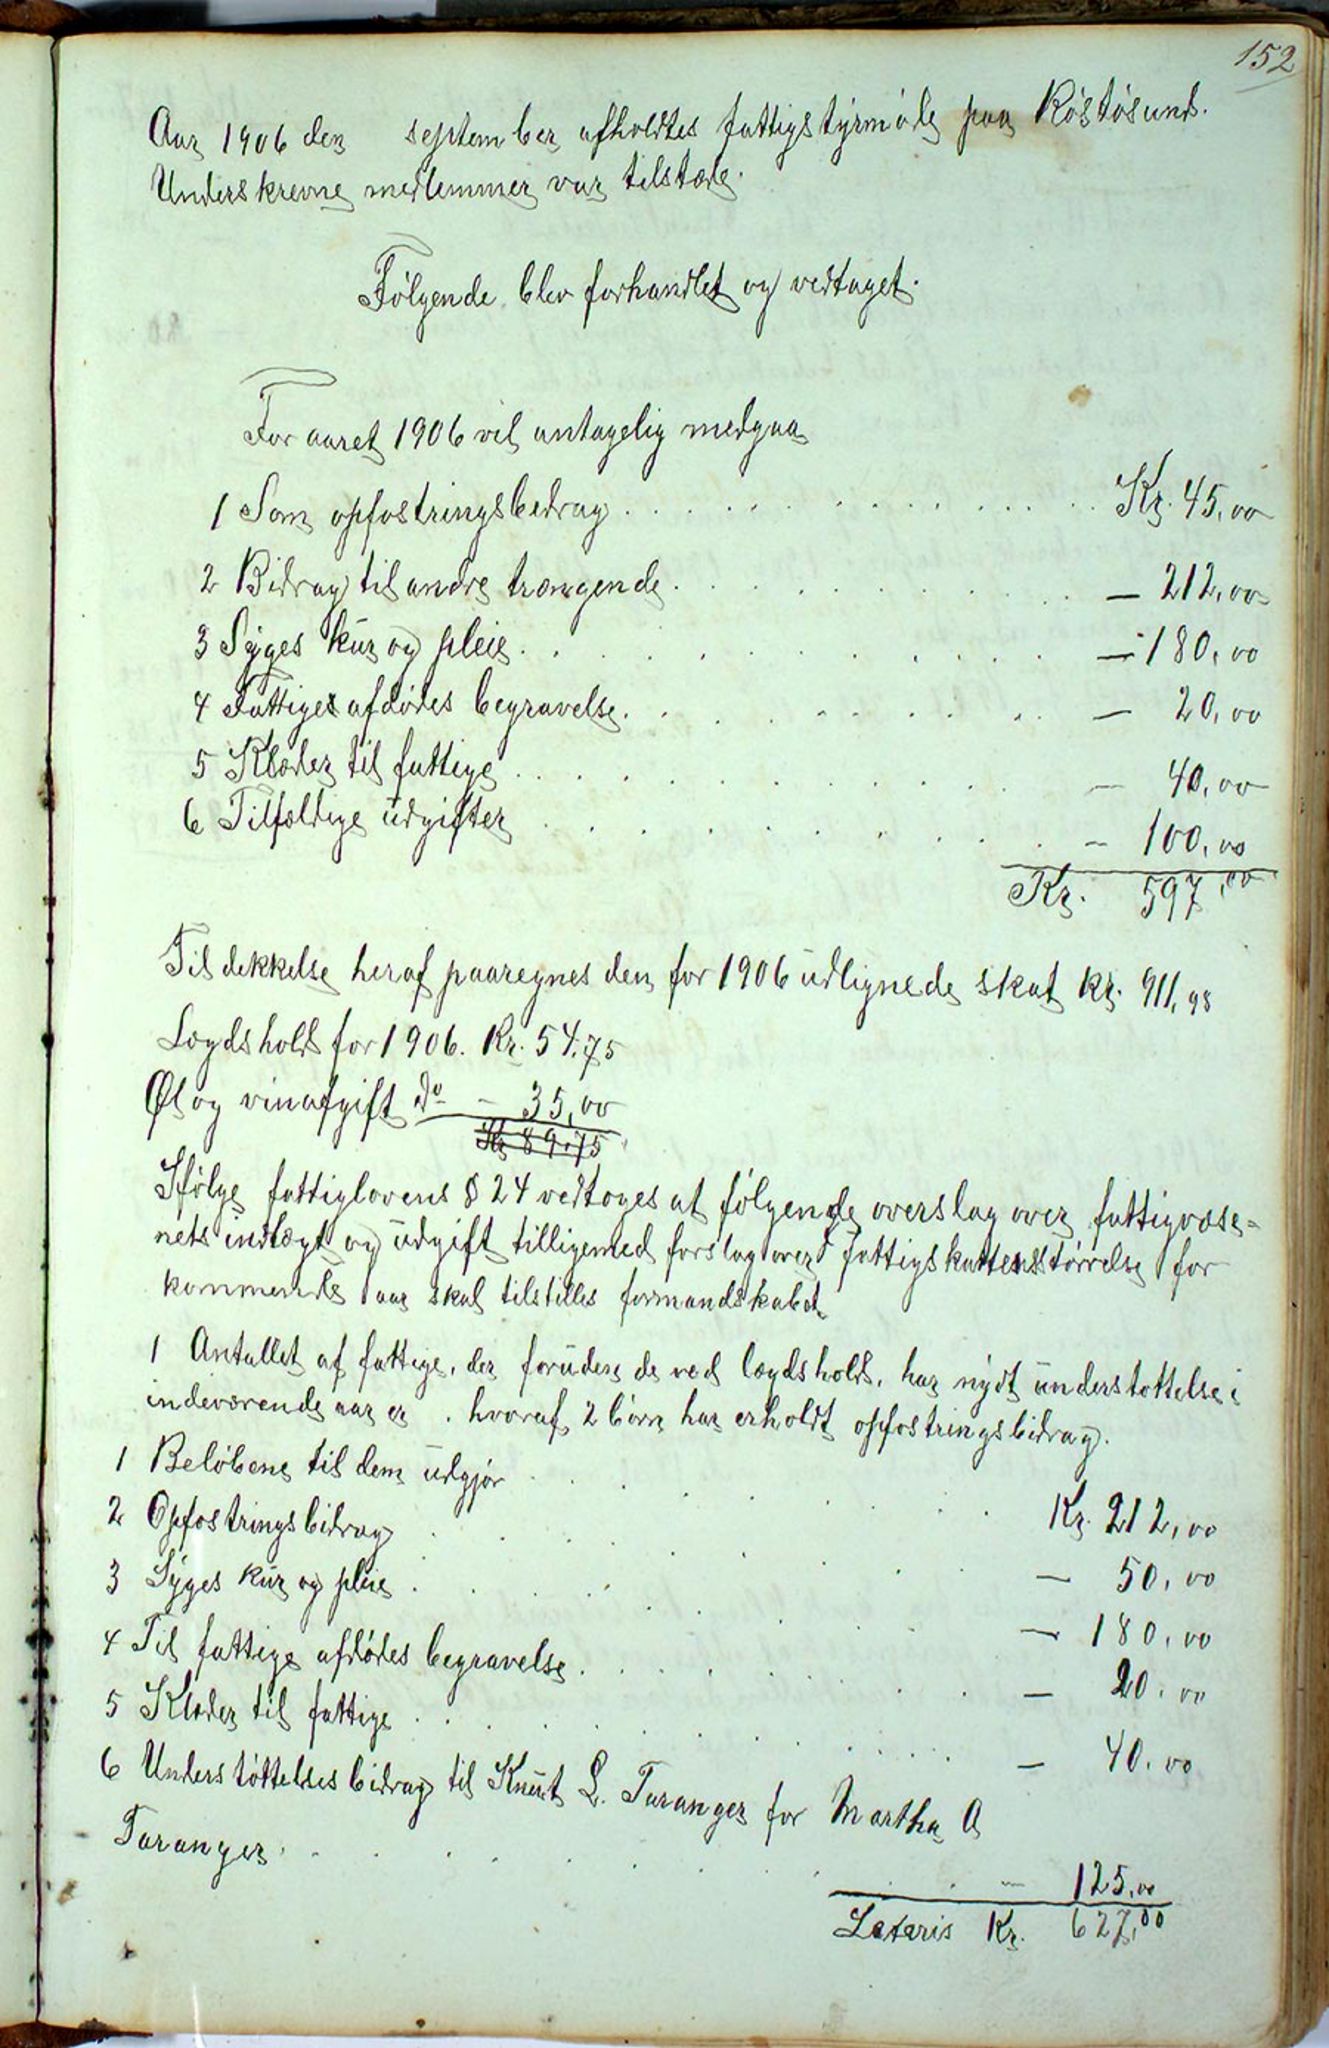 152
Aar 1906 den september afholdtes fattigstyrmøde paa Røstøsund.
Underskrevne medlemmer var tilstæde.
Følgende blev forhandlet og vedtaget.
For aaret 1906 vil antagelig medgaa
1 Som opfostringsbedrag . . . . . . . . . . . . Kr. 45,00
2 Bidrag til andre trængende . . . . . . . . . . — 212,00
3 Syges kur og pleie . . . . . . . . . . . — 180,00
4 Fattiges afdødes begravelse . . . . . . . . . — 20,00
5 Klæder til fattige . . . . . . . . . . . — 40,00
6 Tilfældige udgifter . . . . . . . . . . — 100,00
Kr. 597,00
Til dekkelse heraf paaregnes den for 1906 udlignede skat kr. 911,98
Lægdshold for 1906. Kr. 54,75
Øl og vinafgift do — 35,00
Kr 89,75
Ifølge fattiglovens § 24 vedtoges at følgende overslag over fattigvæse=
nets indtægt og udgift tilligemed forslag over fattigskattens størrelse for
kommende aar skal tilstilles formandskabet
1 Antallet af fattige, der foruden de ved lægdshold, har nydt understøttelse i
indeværende aar er . hvoraf 2 børn har erholdt opfostringsbidrag.
1 Beløbene til dem udgjør . . . . . . . . . Kr. 212,00
2 Opfostringsbidrag . . . . . . . . — 50,00
3 Syges kur og pleie . . . . . . . . — 180,00
4 Til fattige afdødes begravelse . . . . . . . — 20,00
5 Klæder til fattige . . . . . . . . . . — 40,00
6 Understøttelsesbidrag til Knut L. Taranger for Martha O
Taranger . . . . . . . . . . — 125,00
Lateris Kr. 627,00